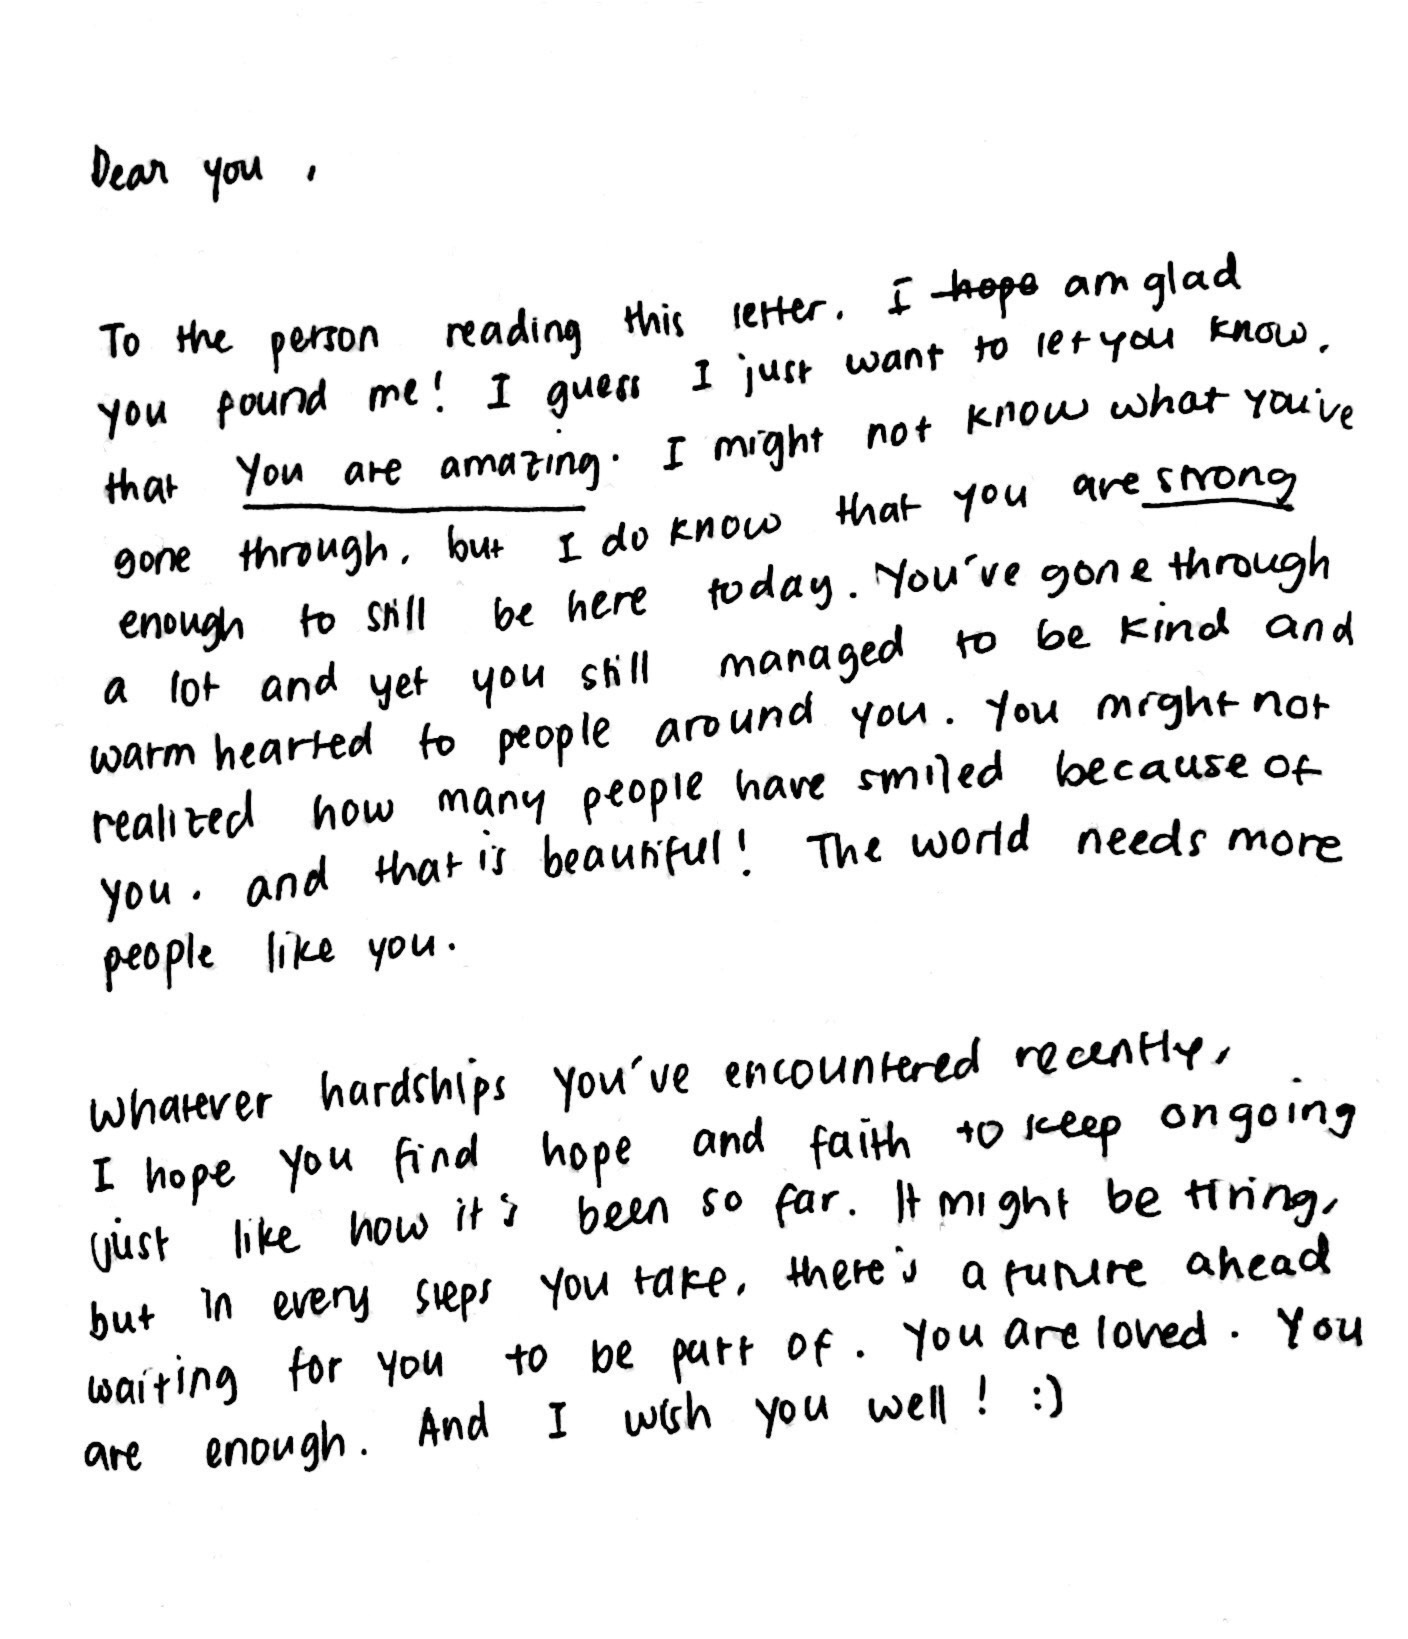 Dear you ,
To the person reading this letter. I ~~hope~~ am glad
you found me! I guess I just want to let you know,
that You are amazing. I might not know what you've
gone through, but I do know that you are strong
enough to still be here today. You've gone through
a lot and yet you still managed to be kind and
warm hearted to people around you. You might not
realized how many people have smiled because of
you. and that is beautiful! The world needs more
people like you.
Whatever hardships you've encountered recently,
I hope you find hope and faith to keep on going
just like how it's been so far. It might be tiring,
but in every steps you take, there's a future ahead
waiting for you to be part of. You are loved. You
are enough. And I wish you well! :)